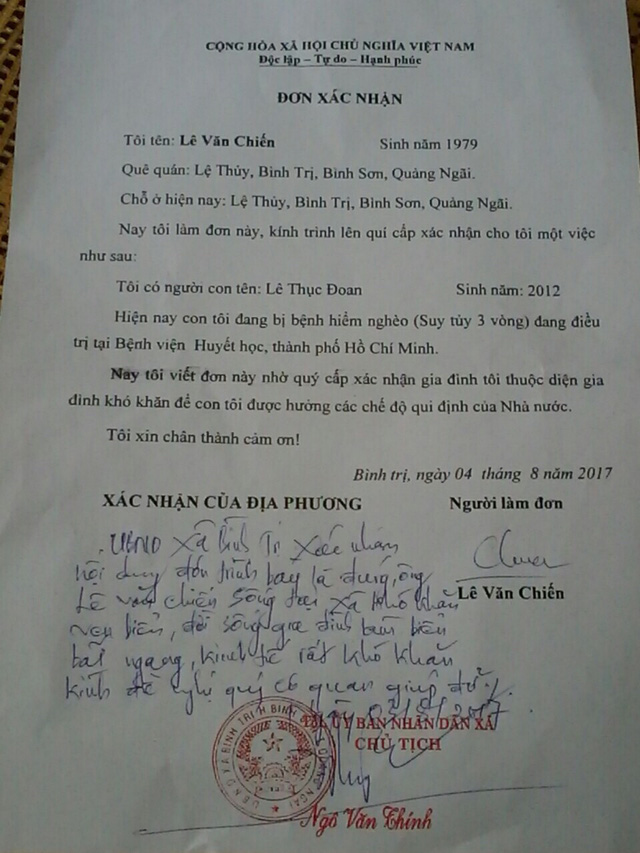 CỘNG HÒA XÃ HỘI CHỦ NGHĨA VIỆT NAM
Độc lập – Tự do – Hạnh phúc
ĐƠN XÁC NHẬN
Tôi tên: Lê Văn Chiến Sinh năm 1979
Quê quán: Lệ Thủy, Bình Trị, Bình Sơn, Quảng Ngãi.
Chỗ ở hiện nay: Lệ Thủy, Bình Trị, Bình Sơn, Quảng Ngãi.
Nay tôi làm đơn này, kính trình lên quí cấp xác nhận cho tôi một việc
như sau:
Tôi có người con tên: Lê Thục Đoan Sinh năm: 2012
Hiện nay con tôi đang bị bệnh hiểm nghèo (Suy tủy 3 vòng) đang điều
trị tại Bệnh viện Huyết học, thành phố Hồ Chí Minh.
Nay tôi viết đơn này nhờ quý cấp xác nhận gia đình tôi thuộc diện gia
đình khó khăn để con tôi được hưởng các chế độ qui định của Nhà nước.
Tôi xin chân thành cảm ơn!
Bình trị, ngày 04 tháng 8 năm 2017
XÁC NHẬN CỦA ĐỊA PHƯƠNG Người làm đơn
UBND xã Bình Trị xác nhận
nội dung đơn trình bày là đúng, ông
Lê Văn Chiến sống tại xã khó khăn
ven biển, đời sống gia đình
ngang, kinh tế rất khó khăn
kính đề nghị quý cơ quan giúp đỡ./.
Lê Văn Chiến
TM. ỦY BAN NHÂN DÂN XÃ
CHỦ TỊCH
U.B.N.D XÃ BÌNH TRỊ H. BÌNH SƠN T. QUẢNG NGÃI
Ngô Văn Thính